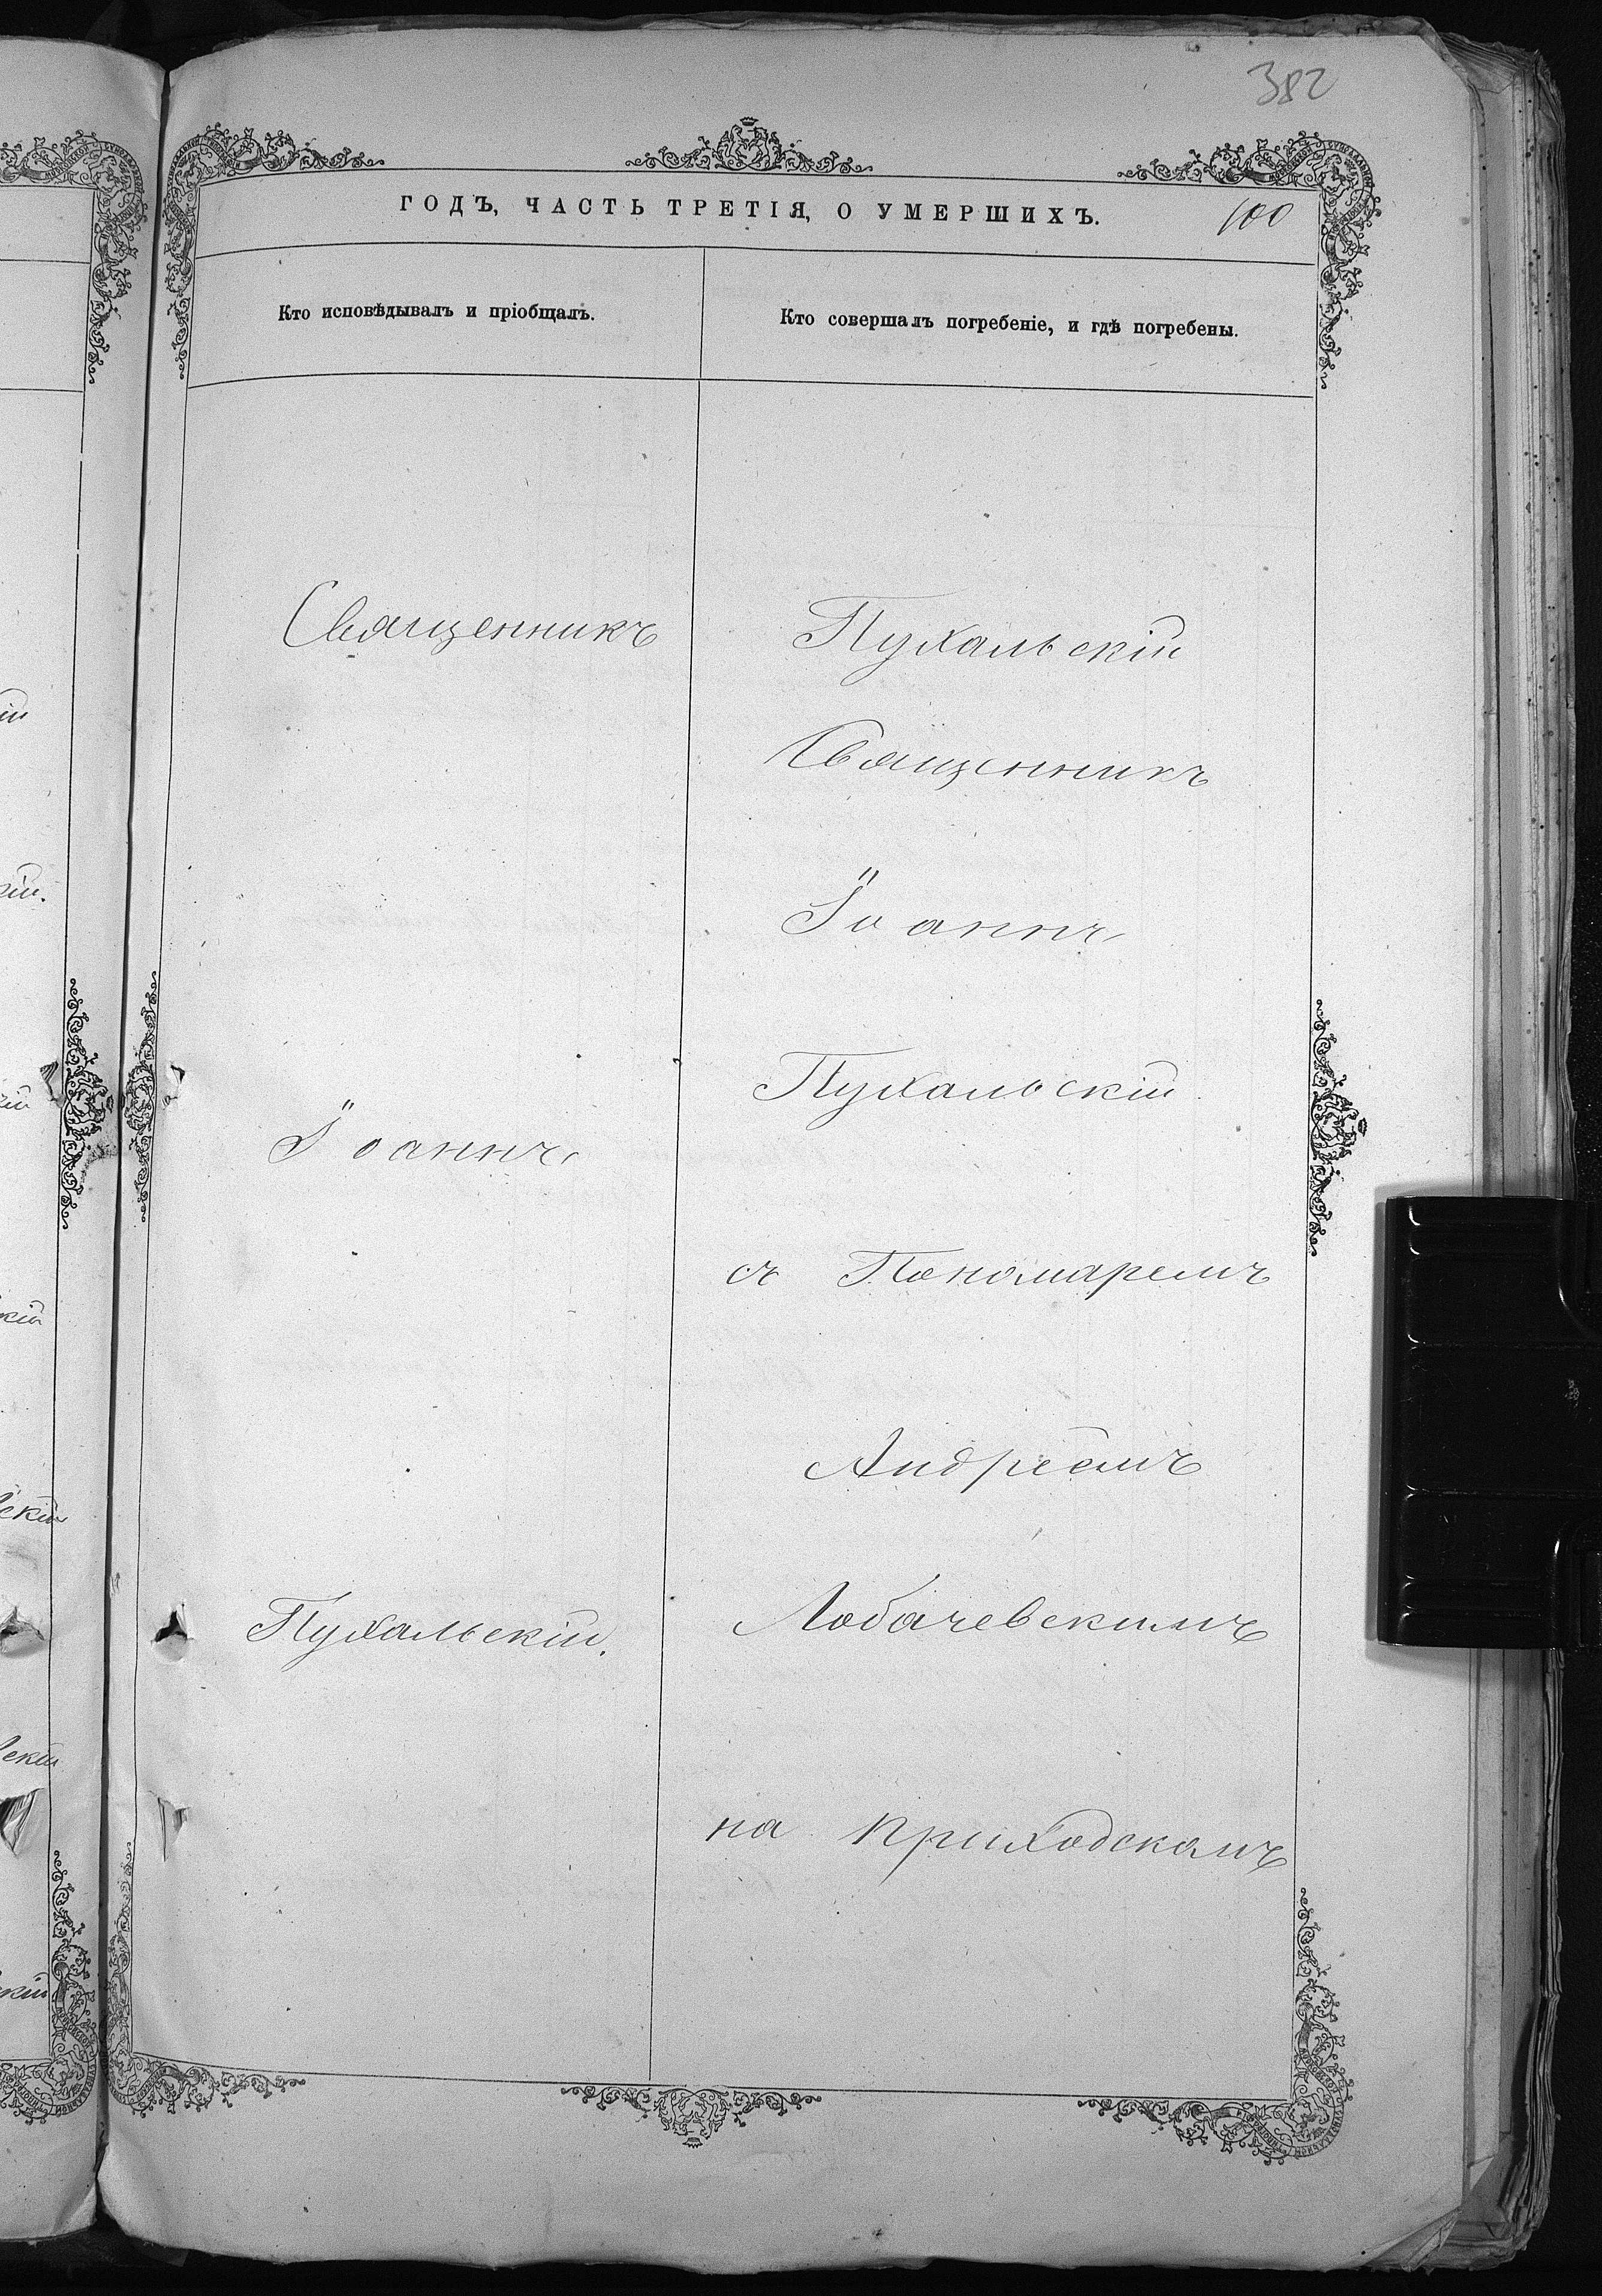 382
ГОДЪ, ЧАСТЬ ТРЕТІЯ, О УМЕРШИХЪ.
100
Кто исповѣдывалъ и пріобщалъ.
Кто совершалъ погребеніе, и гдѣ погребены.
Священникъ
Іоаннъ
Пухальскій.
Пухальскій
Священникъ
Іоаннъ
Пухальскій
съ Пономаремъ
Андреемъ
Лобачевскимъ
на приходскомъ